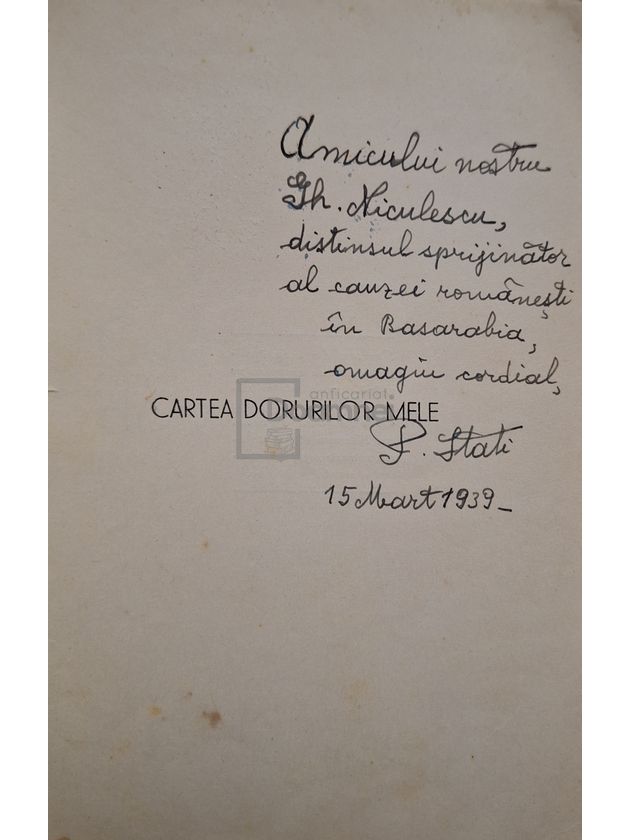 Amicului nostru
Gh. Niculescu,
distinsul sprijinător
al cauzei românești
în Basarabia,
omagiu cordial,
anticariat
CARTEA DORURILOR MELE
P. Stati
15 Mart 1939_